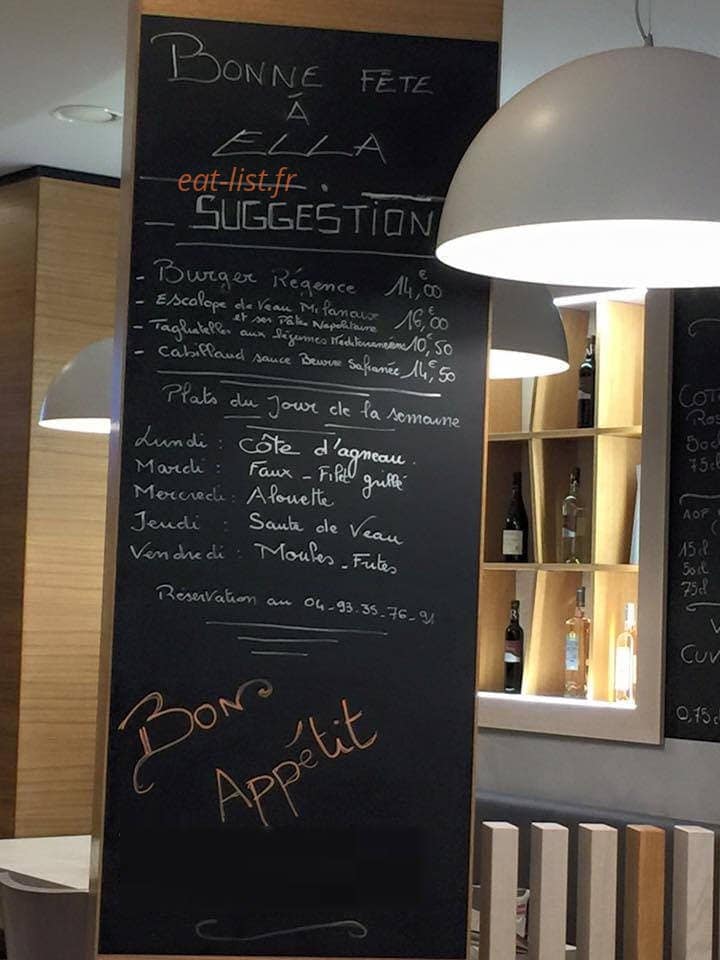 BONNE FÊTE
À
ELLA
eat-list.fr
SUGGESTION
- Burger Régence 14,€00
- Escalope de Veau Milanaise
et ses Pâtes Napolitaine 16,€00
- Tagliatelles aux légumes Méditerranéens 10,€50
- Cabillaud sauce Beurre Safranée 14,€50
Plats du Jour de la semaine
Lundi : Côte d'agneau.
Mardi : Faux - Filet grillé
Mercredi : Alouette
Jeudi : Saute de Veau
Vendredi : Moules - Frites
Réservation au 04-93-35-76-91
BON
Appétit
50cl
75cl
AOP
15cl
50cl
75cl
CUV
0,75c